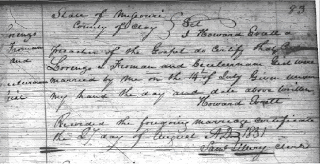 83
State of Missouri
County of Clay Sct
I Howard Everett a
preacher of the Gospel do Certify that
Lorenzo D Froman and were
married by me on the 14th of July Given under
my hand the day and date above written
Howard Everett
Recorded the foregoing marriage certificate
the 2d day of August AD 1831
Clerk
Lorenzo
Froman
and